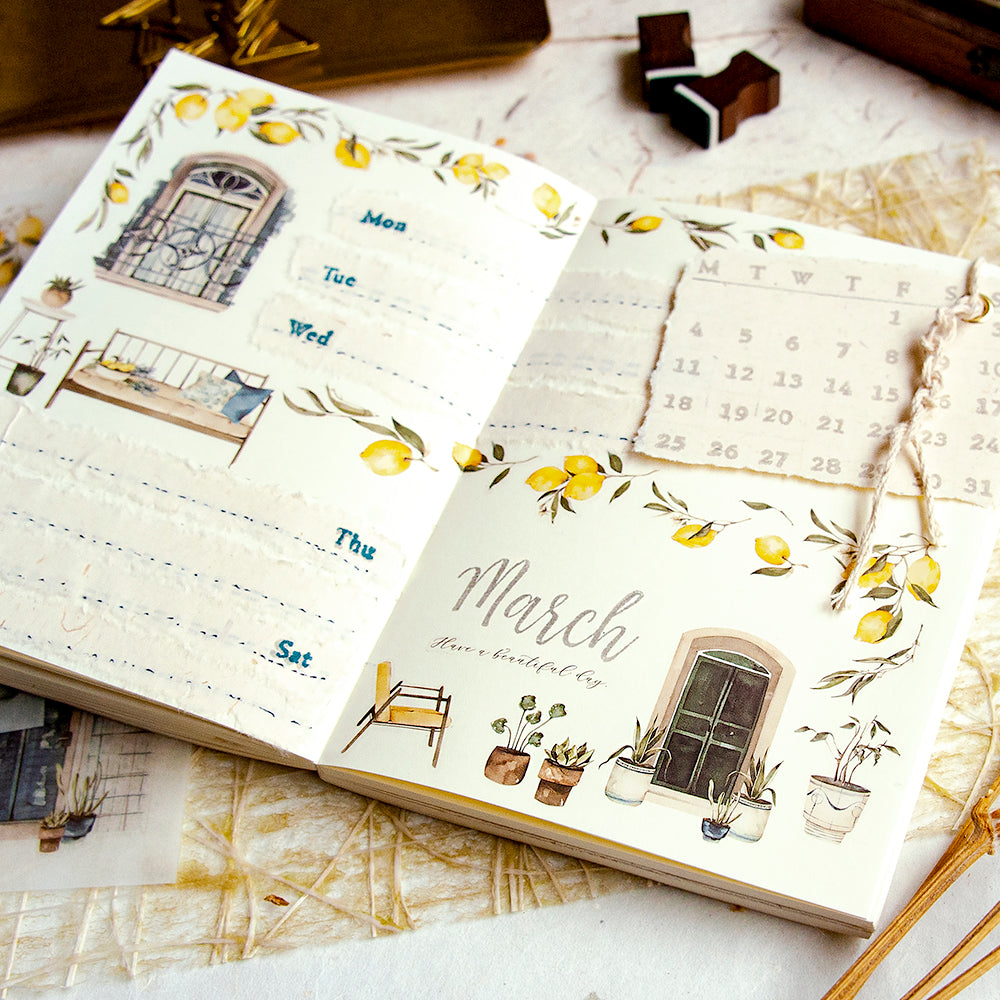 Mon
Tue
Wed
Thu
Sat
M T W T F S
1
4 5 6 7 8 9 10
11 12 13 14 15 16 17
18 19 20 21 22 23 24
25 26 27 28 29 30 31
March
Have a beautiful day.